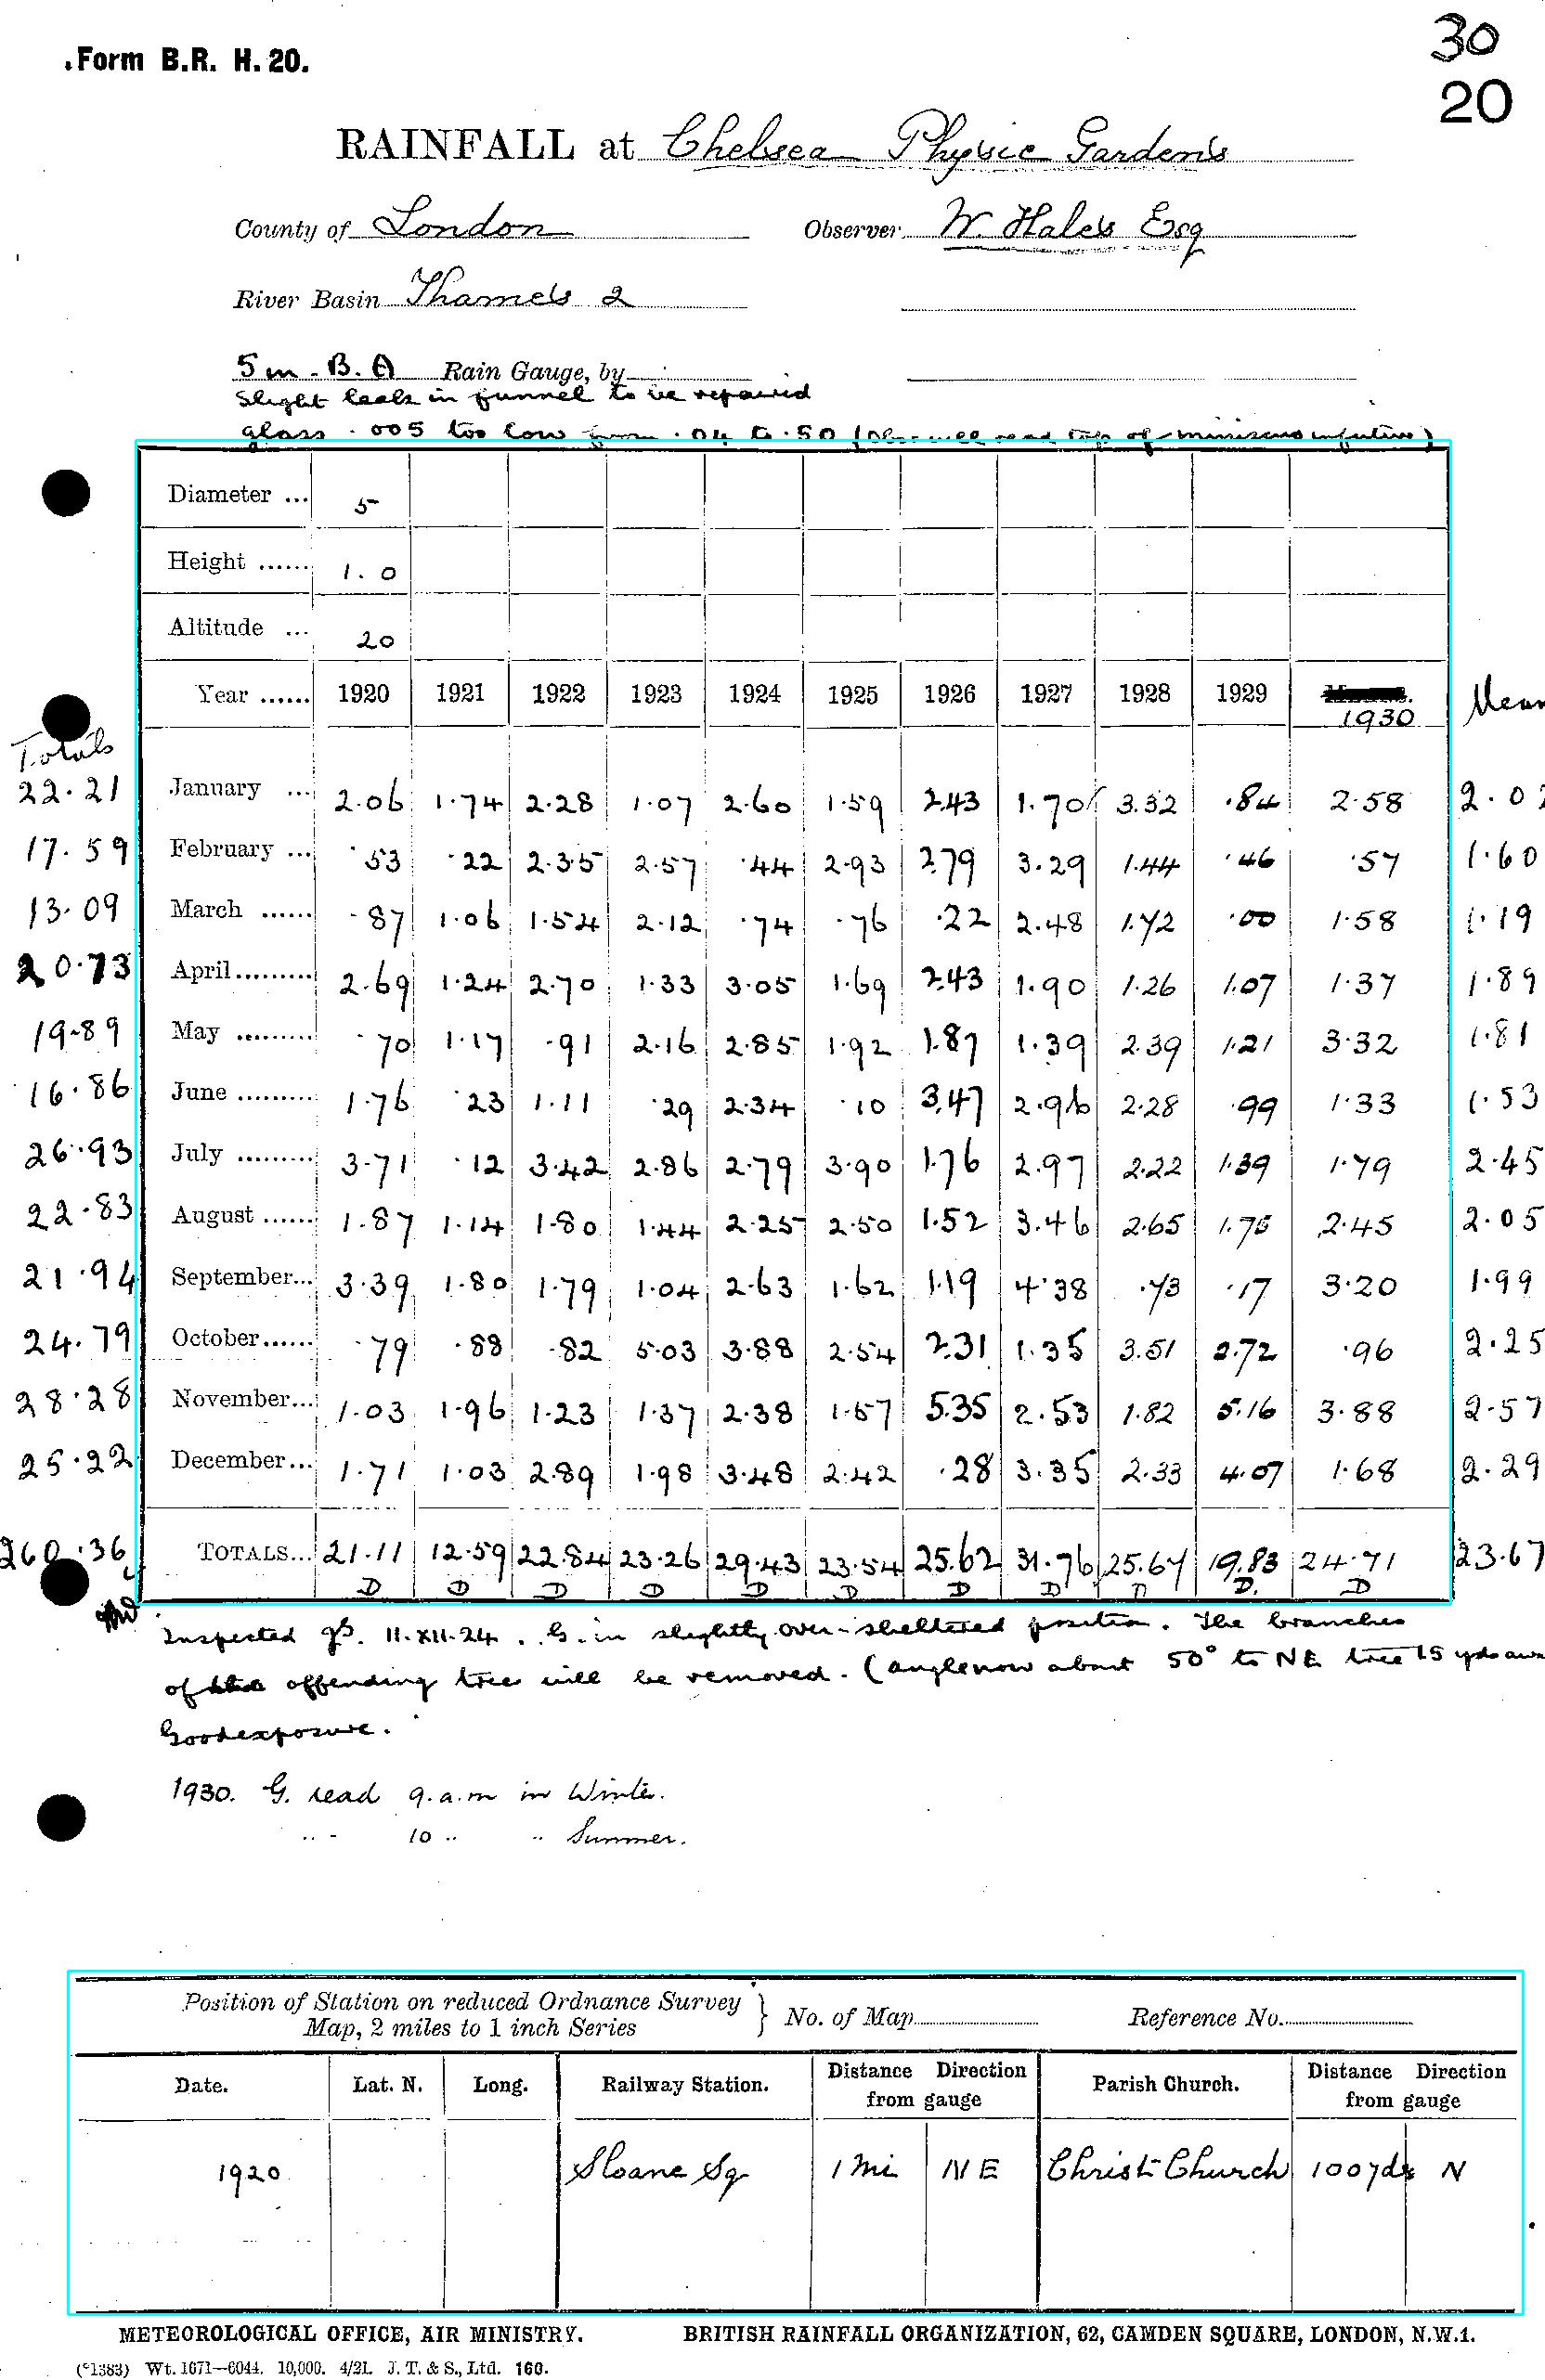 Form B.R. H. 20.
30
20
RAINFALL at Chelsea Physic Gardens
County of London Observer W. Hales Esq
River Basin Thames 2
5 in. B.A Rain Gauge, by
Slight leak in funnel to be repaired
glass .005 too low from .04 to .50 (Obs will read top of miniscus in future)
Diameter ... 5
Height ...... 1.0
Altitude ... 20
Year ...... 1920 1921 1922 1923 1924 1925 1926 1927 1928 1929 1930 Mean
Totals
22.21 January ... 2.06 1.74 2.28 1.07 2.60 1.59 2.43 1.70 3.32 .84 2.58 2.02
17.59 February ... .53 .22 2.35 2.57 .44 2.93 2.79 3.29 1.44 .46 .57 1.60
13.09 March ...... .87 1.06 1.54 2.12 .74 .76 .22 2.48 1.72 .00 1.58 1.19
20.73 April......... 2.69 1.24 2.70 1.33 3.05 1.69 2.43 1.90 1.26 1.07 1.37 1.89
19.89 May ......... .70 1.17 .91 2.16 2.85 1.92 1.87 1.39 2.39 1.21 3.32 1.81
16.86 June ......... 1.76 .23 1.11 .29 2.34 .10 3.47 2.96 2.28 .99 1.33 1.53
26.93 July ......... 3.71 .12 3.42 2.86 2.79 3.90 1.76 2.97 2.22 1.39 1.79 2.45
22.83 August ...... 1.87 1.14 1.80 1.44 2.25 2.50 1.52 3.46 2.65 1.75 2.45 2.05
21.94 September... 3.39 1.80 1.79 1.04 2.63 1.62 1.19 4.38 .73 .17 3.20 1.99
24.79 October...... .79 .88 .82 5.03 3.88 2.54 2.31 1.35 3.51 2.72 .96 2.25
28.28 November... 1.03 1.96 1.23 1.37 2.38 1.57 5.35 2.53 1.82 5.16 3.88 2.57
25.22 December... 1.71 1.03 2.89 1.98 3.48 2.42 .28 3.35 2.33 4.07 1.68 2.29
260.36 TOTALS... 21.11 12.59 22.84 23.26 29.43 23.54 25.62 31.76 25.67 19.83 24.71 23.67
D D D D D D D D D D. D
Inspected 11.XII.24. G. in slightly over-sheltered position. The branches
of offending tree will be removed. (angle now about 50° to NE tree 15 yds
Good exposure.
1930. G. read 9.a.m in Winter.
.. - 10 .. .. Summer.
Position of Station on reduced Ordnance Survey
Map, 2 miles to 1 inch Series } No. of Map Reference No.
Date. Lat. N. Long. Railway Station. Distance Direction from gauge Parish Church. Distance Direction from gauge
1920 Sloane Sq 1 mi NE Christ Church 100yds N
METEOROLOGICAL OFFICE, AIR MINISTRY. BRITISH RAINFALL ORGANIZATION, 62, CAMDEN SQUARE, LONDON, N.W.1.
(*1383) Wt. 1671—6044. 10,000. 4/21. J. T. & S., Ltd. 160.